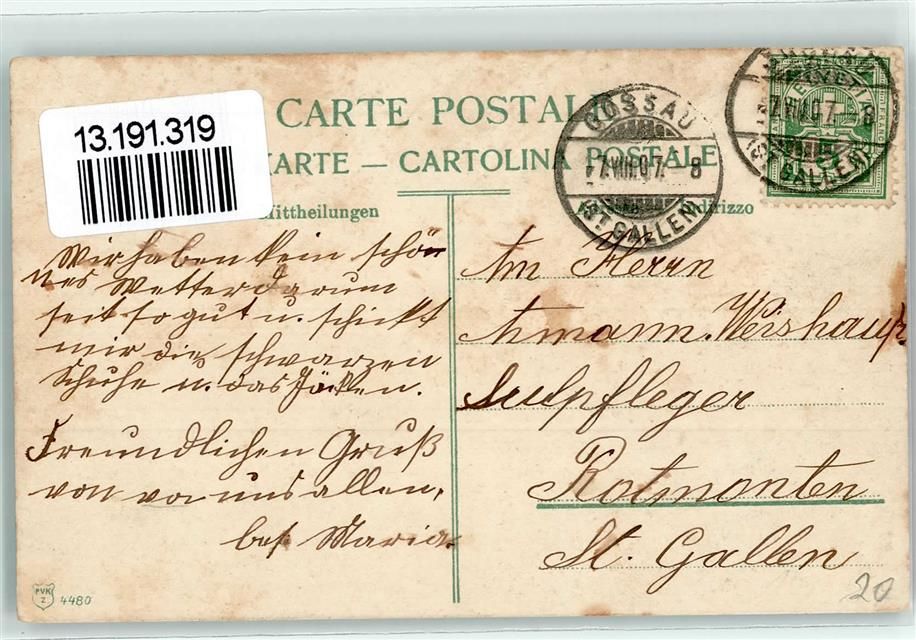 13.191.319
CARTE POSTALE
KARTE — CARTOLINA POSTALE
Mittheilungen
Indirizzo
GOSSAU
7.VIII.07. 8
(ST. GALLEN)
7.VIII.07. 8
(ST. GALLEN)
Wir haben kein schö
nes Wetter darum
seit so gut u. schickt
mir die schwarzen
Schuhe u. das Jäcken.
Freundlichen Gruß
von uns allen,
bes. Maria.
An Herrn
Amann. Weishaupt
pfleger
Rotmonten
St. Gallen
PVK
Z
4480
20